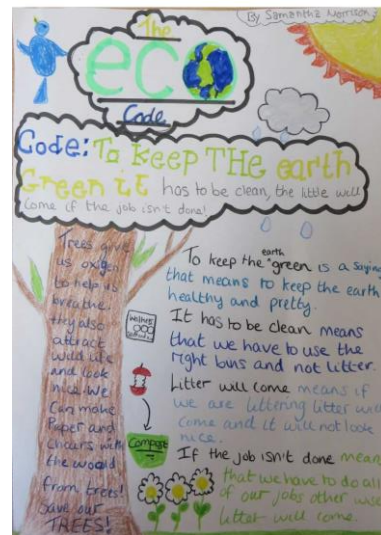 By Samantha Morrison
The
eco
Code
Code: To KEEP THE earth
Green it has to be clean, the little will
come if the job isn't done!
Trees give
us oxigen
to help us
breathe.
they also
attract
wild life
and look
nice. We
can make
Paper and
chairs with
the woo d
from trees!
save our
TREES!
Compost
earth
To keep the "green is a saying
that means to keep the earth
healthy and pretty.
It has to be clean means
that we have to use the
right bins and not litter.
Litter will come means if
we are littering litter will
come and it will not look
nice.
If the job isn't done means
that we have to do all
of our jobs other wise
litter will come.